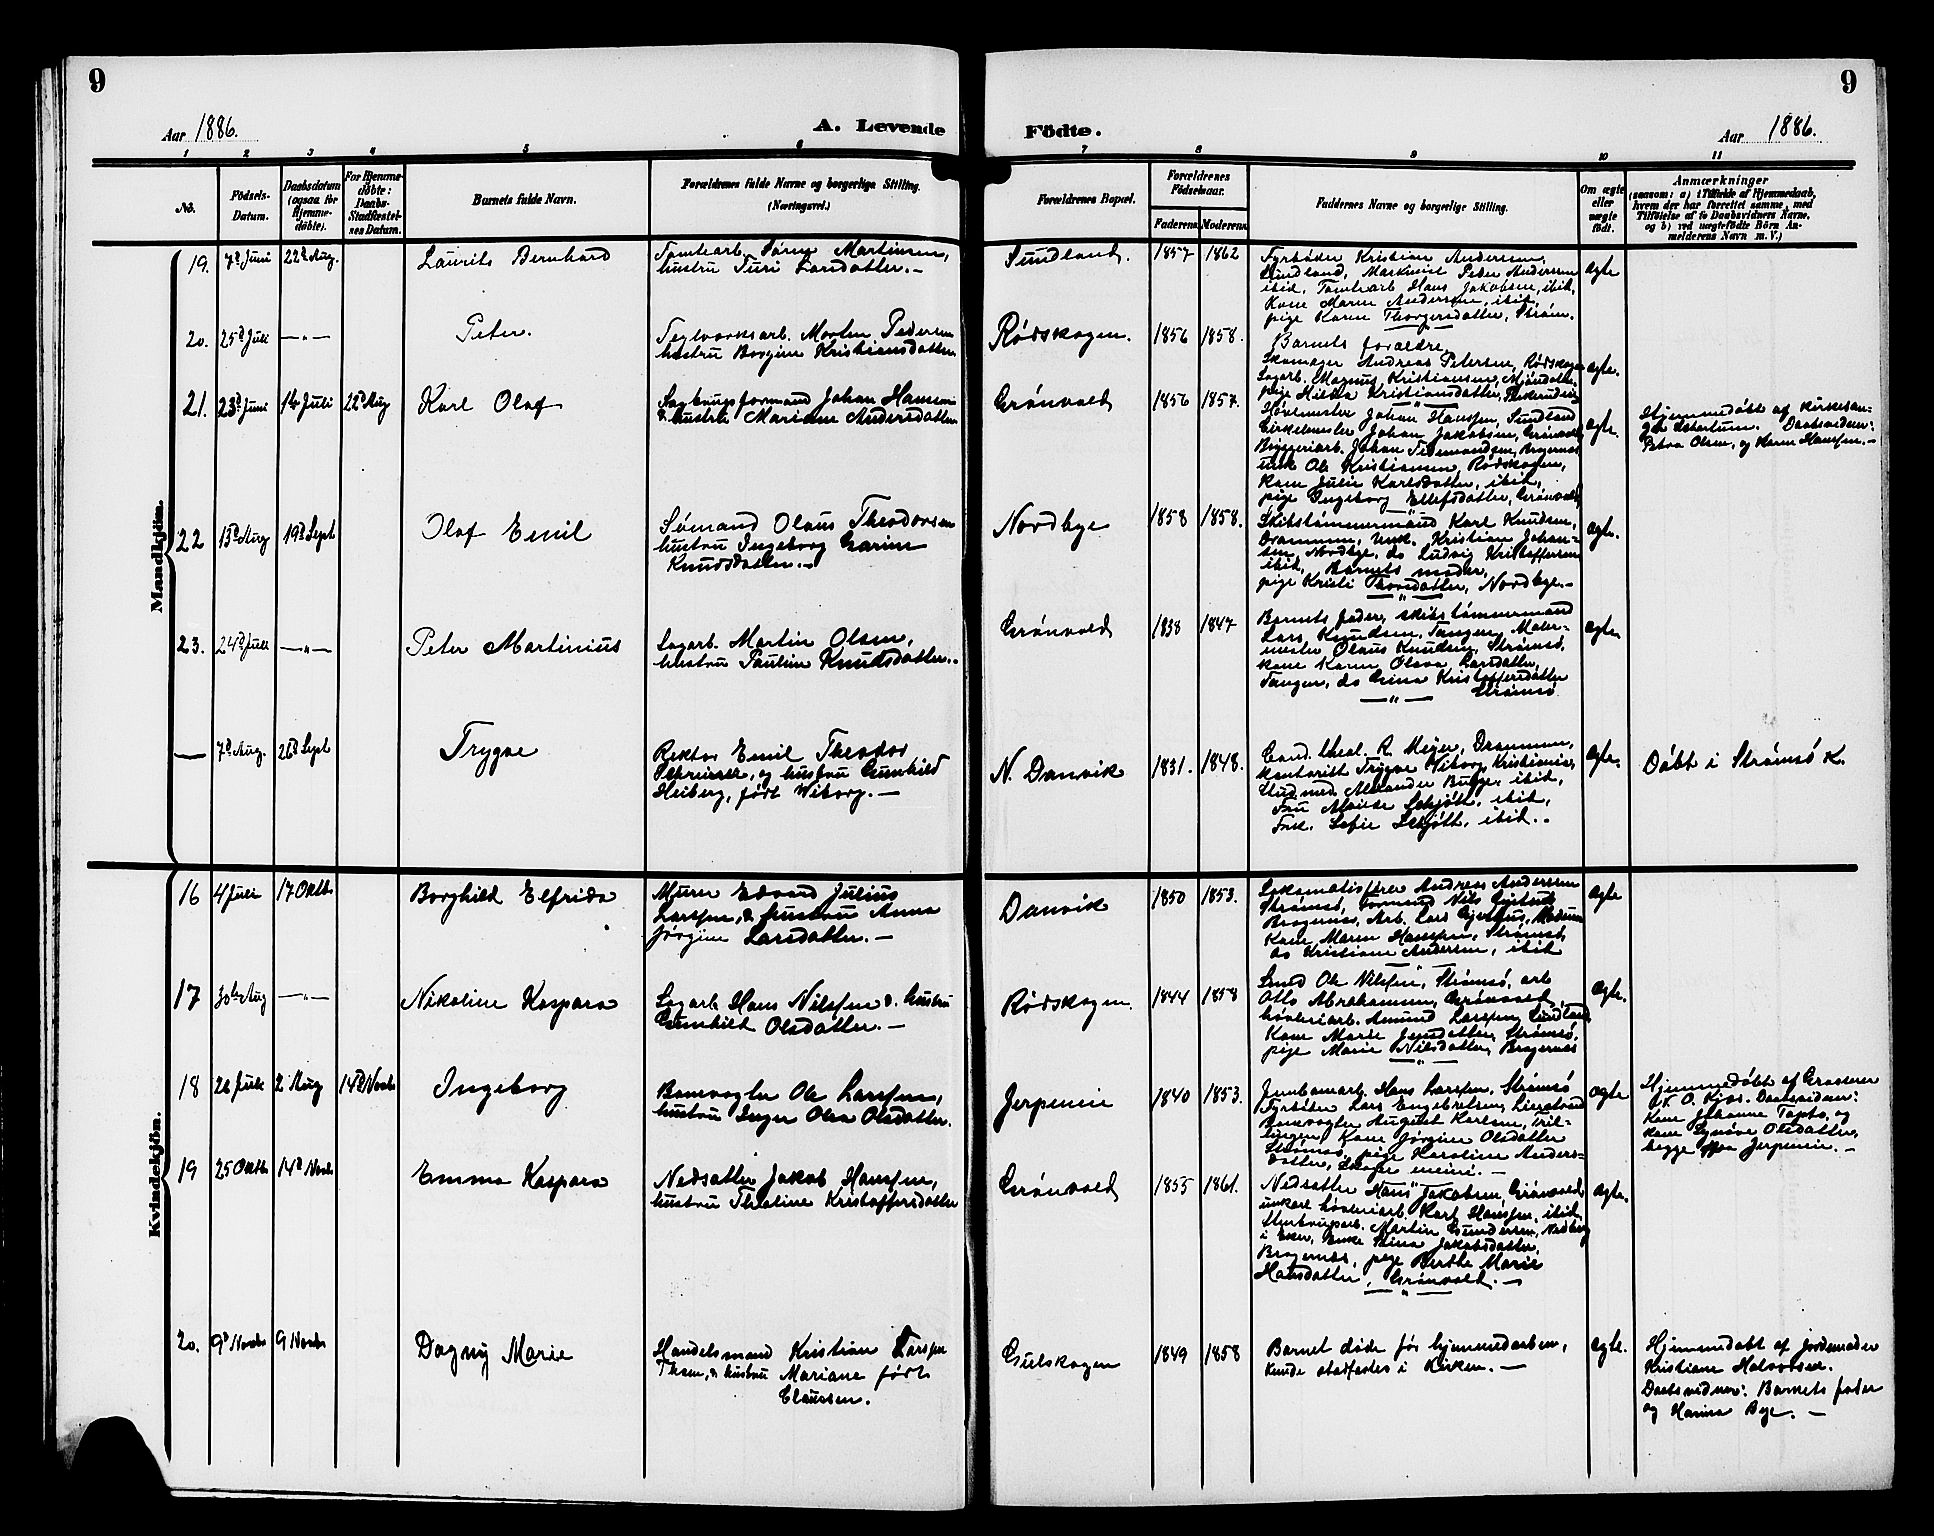 9
9
Aar 1886.
A. Levende Födte.
Aar 1886.
1 2 3 4 5 6 7 8 9 10 11
No.
Födsels-
Datum.
Daabsdatum
(ogsaa for
Hjemme-
döbte).
For Hjemme-
döbte:
Daabs-
Stadfæstel-
ses Datum.
Barnets fulde Navn.
Forældrenes fulde Navne og borgerlige Stilling.
(Næringsvei.)
Forældrenes Bopæl.
Forældrenes
Födselsaar.
Faderens. Moderens.
Faddernes Navne og borgerlige Stilling.
Om ægte
eller
uægte
födt.
Anmærkninger
(saasom: a) i Tilfælde af Hjemmedaab,
hvem der har forrettet samme, med
Tilföielse af to Daabsvidners Navne,
og b) ved uægtefödte Börn An-
melderens Navn m. V.)
Mandkjön.
19. 7d Juni 22d Aug. Laurits Bernhard
Tomtearb. Søren Martinsen,
hustru Turi Larsdatter.—
Sundland. 1857 1862
Fyrbøder Kristian Andersen,
Sundland, Maskinist Peter Andersen
ibid, Tomtearb Hans Jakobsen, ibid,
Kone Maren Andersen, ibid,
pige Karen Thorgersdatter, Strøm.
ægte
20. 25d Juli —"— Peter.
Teglværksarb. Morten Pedersen
hustru Borgine Kristiansdatter
Rødskogen. 1856 1858.
Barnets forældre,
Skomager Andreas Petersen, Rødskogen
Sagarb. Magnus Kristiansen, Mjøndalen
pige Hilda Kristiansdatter,
ægte.
21. 23d Juni 14 Juli 22d Aug Karl Olaf
Sagbrugsformand Johan Hansen
& hustru Mariane Andersdatter
Grønvold 1856 1857.
Høvlemester Johan Hanssen, Sundland
Cirkelmester Johan Jakobsen, Grønvold,
Bryggeriarb. Johan Tidemandsen, Bragernes
unk Ole Kristiansen, Rødskogen,
Kone Julie Karlsdatter, ibid,
pige Ingeborg Ellefsdatter, Grønvold,
ægte.
Hjemmedøbt af kirkesan-
ger Daabsvidner:
Petra Olsen, og Karen Hanssen.—
22 13d Aug 19d Sept Olaf Emil
Sømand Olaus Theodorsen
hustru Ingeborg Karine
Knudsdatter.—
Nordbye 1858 1858.
Skibstømmermand Karl Knudsen,
Drammen, Unk. Kristian Johan-
sen, Nordbye, do Ludvig Kristoffersen
ibid, Barnets moder,
pige Kristi Thorsdatter, Nordbye.—
ægte.
23. 24d Juli —"— Peter Martinius
Sagarb. Martin Olsen,
hustru Pauline Knudsdatter..
Grønvold 1838 1847
Barnets fader, skibstømmermand
Lars Knudsen, Tangen, Maler-
mester Olaus Knudsen, Strømsø,
kone Karen Olava Larsdatter,
Tangen, do Gina Kristoffersdatter
—"— Strømsø
ægte
— 7d Aug. 26d Sept Trygve
Rektor Emil Theodor
og hustru Gunhild
Heiberg, født Wiborg.—
N. Danvik 1831. 1848.
Cand. theol. R. Meyer, Drammen,
kontorist Trygve Wiborg Kristiania,
Stud med. Alexander Bugge, ibid,
Fru Schjøtt, ibid,
Frk. Sofie Schjøtt, ibid..
ægte.
Døbt i Strømsø K.
Kvindekjön.
16 4 Juli 17 Oktb Borghild Elfrida
Murer Edvard Julius
Larssen, & hustru Anna
Jørgine Larsdatter.—
Danvik 1850 1853.
Lokomotivfører Andreas Andersen
Strømsø, formand Nils
Bragernes, Arb. Lars
Kone Maren Hanssen, Strømsø,
do Kristiane Andersen, ibid
ægte
17 30te Aug —"— Nikoline Kaspara
Sagarb Hans Nilssen & hustru
Gunhild Olsdatter.—
Rødskogen. 1844 1858
Smed Ole Nilssen, Strømsø, arb
Otto Abrahamsen, Grønvold,
høvleriarb. Amund Larssen, Sundland
Kone Marte Jensdatter, Strømsø,
pige Marie Nilsdatter, Bragernes
ægte.
18 26 Juli 2 Aug 14d Novb Ingeborg
Banevogter Ole Larssen,
hustru Inger Olea Olsdatter.
Jerpenin 1840 1853.
Jernbanearb. Hans Larssen, Strømsø
Fyrbøder Lars Engebretsen,
Banevogter August Karlsen,
Kone Jørgine Olsdatter
Strømsø, pige Karoline Anders-
datter,
ægte
Hjemmedøbt af Graverer
O. Kjøs. Daabsvidner:
Kone Johanne og
kone Synøve Olsdatter,
begge fra Jerpenin.—
19 25 Oktb 14d Novb Emma Kaspara
Nedsatter Jakob Hanssen,
hustru Thaline Kristoffersdatter
Grønvold 1855 1861.
Nedsatter Hans Jakobsen, Grønvold,
unkarl høvleriarb. Karl Hanssen, ibid,
Martin Gundersen, Nedberg
i Eker, Enke Stina Jakobsdatter,
Bragernes, pige Berthe Marie
Hansdatter, Grønvold.—
ægte.
20. 9d Novb 9 Novb Dagny Marie
Handelsmand Kristian Larssen
& hustru Mariane født
Claussen.
Gulskogen 1849 1858
Barnet døde før hjemmedaaben,
kunde stadfæstes i Kirken.—
ægte.
Hjemmedøbt af Jordemoder
Kristiane Halvorsen.
Daabsvidner: Barnets fader
og Hanna Bye.—